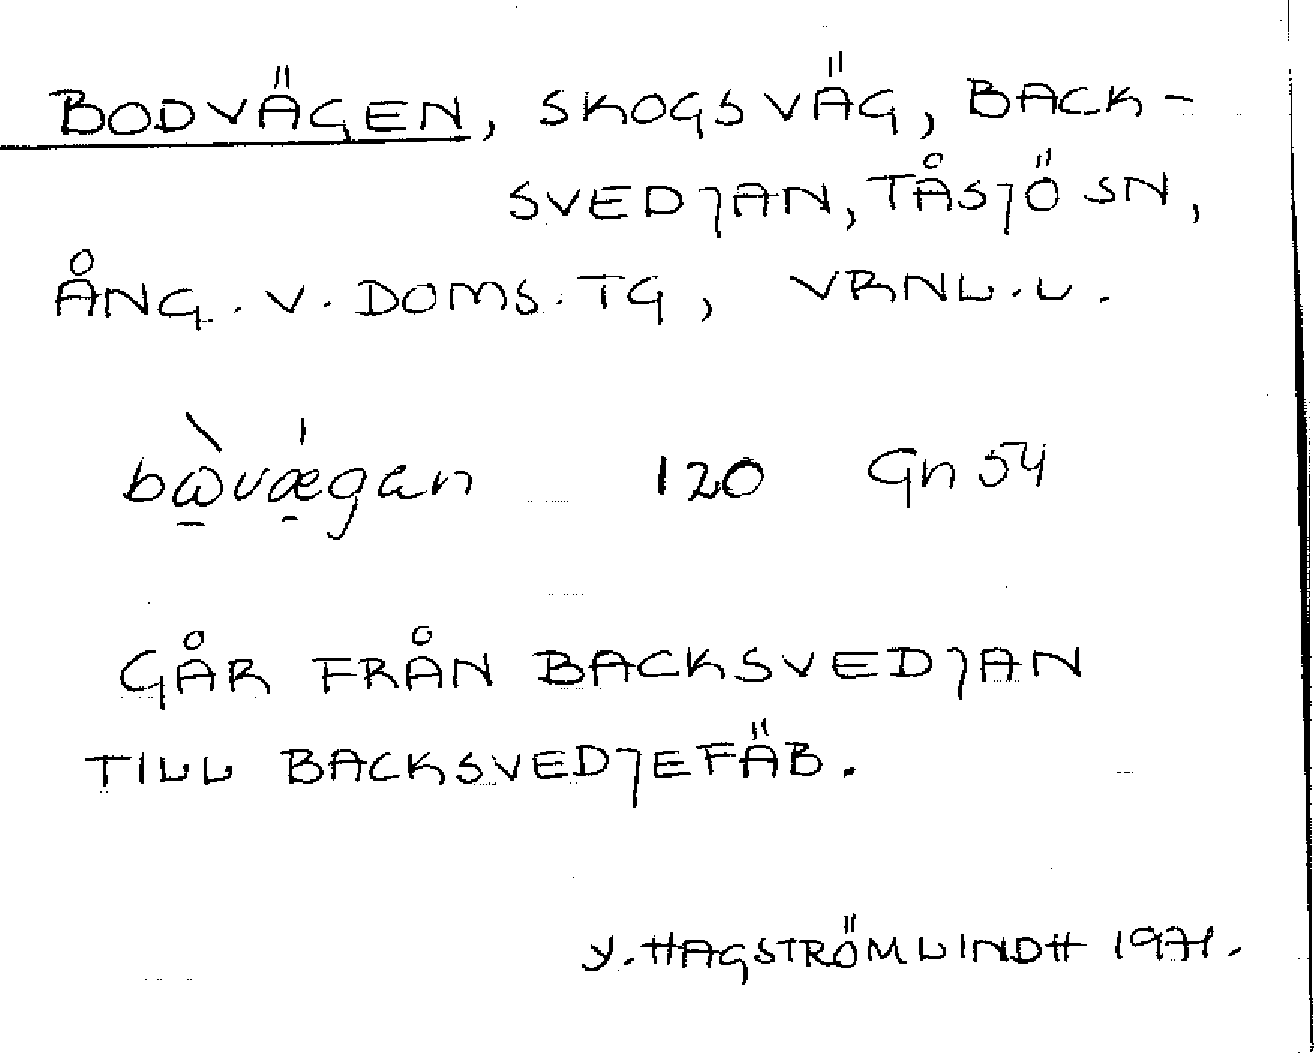 BODVÄGEN, SKOGSVÄG, BACK-
SVEDJAN, TÅSJÖ SN,
ÅNG. V. DOMS. TG, VRNL. L.
bà̱vǽ̱gan 120 Gn 54
GÅR FRÅN BACKSVEDJAN
TILL BACKSVEDJEFÄB.
Y. HAGSTRÖM LINDH 1971.